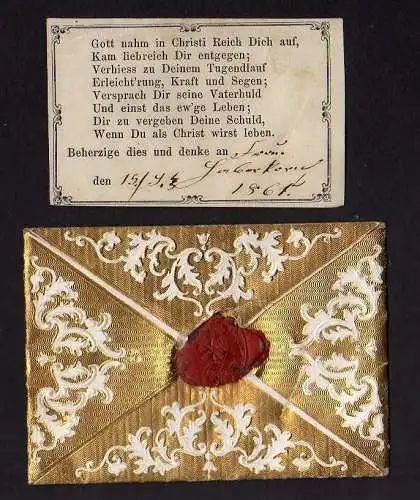 Gott nahm in Christi Reich Dich auf,
Kam liebreich Dir entgegen;
Verhiess zu Deinem Tugendlauf
Erleicht'rung, Kraft und Segen;
Versprach Dir seine Vaterhuld
Und einst das ew'ge Leben;
Dir zu vergeben Deine Schuld,
Wenn Du als Christ wirst leben.
Beherzige dies und denke an Frau
Haberkorn
den